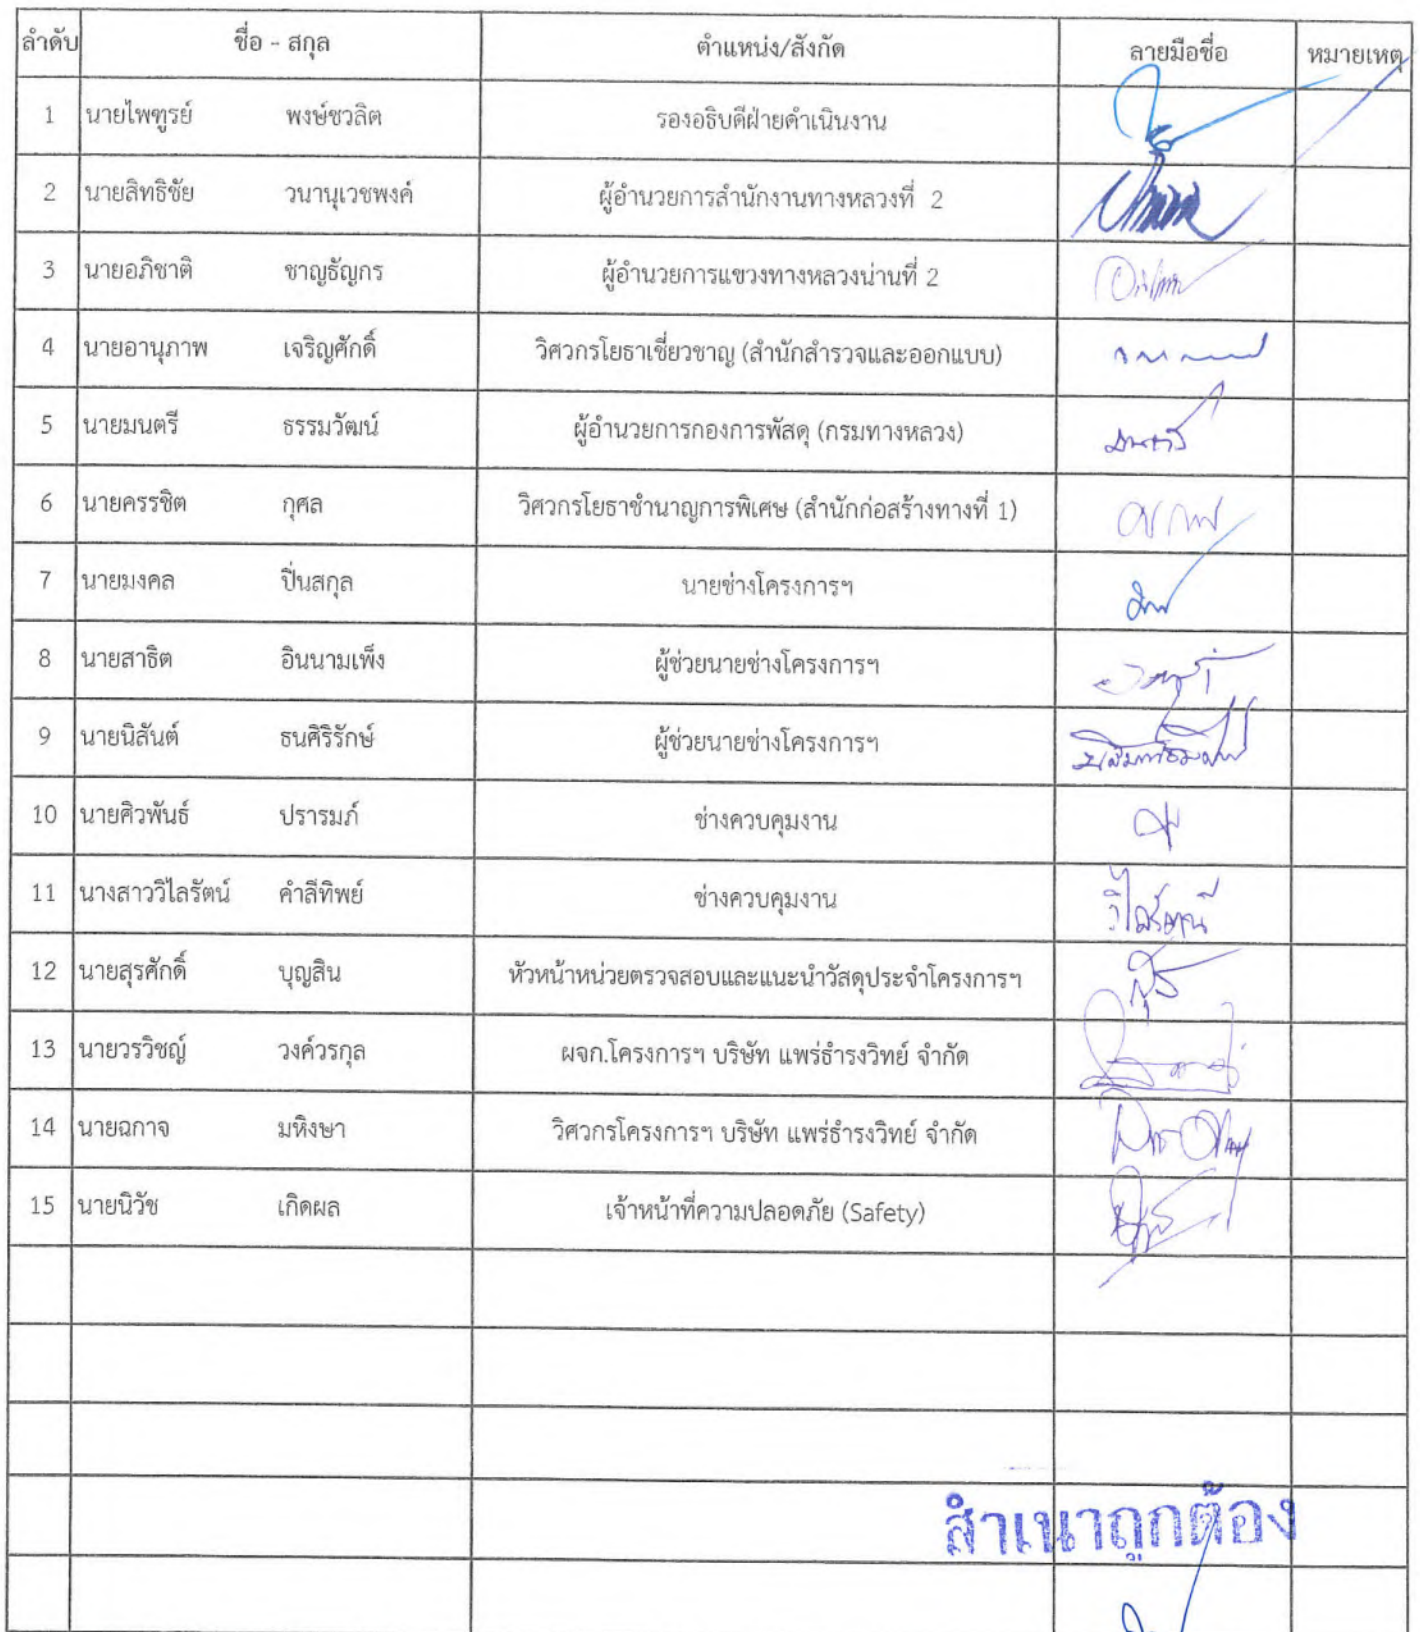 ลำดับ ชื่อ - สกุล ตำแหน่ง/สังกัด ลายมือชื่อ หมายเหตุ
1 นายไพฑูรย์ พงษ์ชวลิต รองอธิบดีฝ่ายดำเนินงาน
2 นายสิทธิชัย วนานุเวชพงค์ ผู้อำนวยการสำนักงานทางหลวงที่ 2
3 นายอภิชาติ ชาญธัญกร ผู้อำนวยการแขวงทางหลวงน่านที่ 2
4 นายอานุภาพ เจริญศักดิ์ วิศวกรโยธาเชี่ยวชาญ (สำนักสำรวจและออกแบบ)
5 นายมนตรี ธรรมวัฒน์ ผู้อำนวยการกองการพัสดุ (กรมทางหลวง) มนตรี
6 นายครรชิต กุศล วิศวกรโยธาชำนาญการพิเศษ (สำนักก่อสร้างทางที่ 1)
7 นายมงคล ปิ่นสกุล นายช่างโครงการฯ
8 นายสาธิต อินนามเพ็ง ผู้ช่วยนายช่างโครงการฯ
9 นายนิสันต์ ธนศิริรักษ์ ผู้ช่วยนายช่างโครงการฯ
10 นายศิวพันธ์ ปรารมภ์ ช่างควบคุมงาน
11 นางสาววิไลรัตน์ คำลีทิพย์ ช่างควบคุมงาน วิไลรัตน์
12 นายสุรศักดิ์ บุญสิน หัวหน้าหน่วยตรวจสอบและแนะนำวัสดุประจำโครงการฯ
13 นายวรวิชญ์ วงค์วรกุล ผจก.โครงการฯ บริษัท แพร่ธำรงวิทย์ จำกัด
14 นายฉกาจ มหิงษา วิศวกรโครงการฯ บริษัท แพร่ธำรงวิทย์ จำกัด
15 นายนิวัช เกิดผล เจ้าหน้าที่ความปลอดภัย (Safety)
สำเนาถูกต้อง